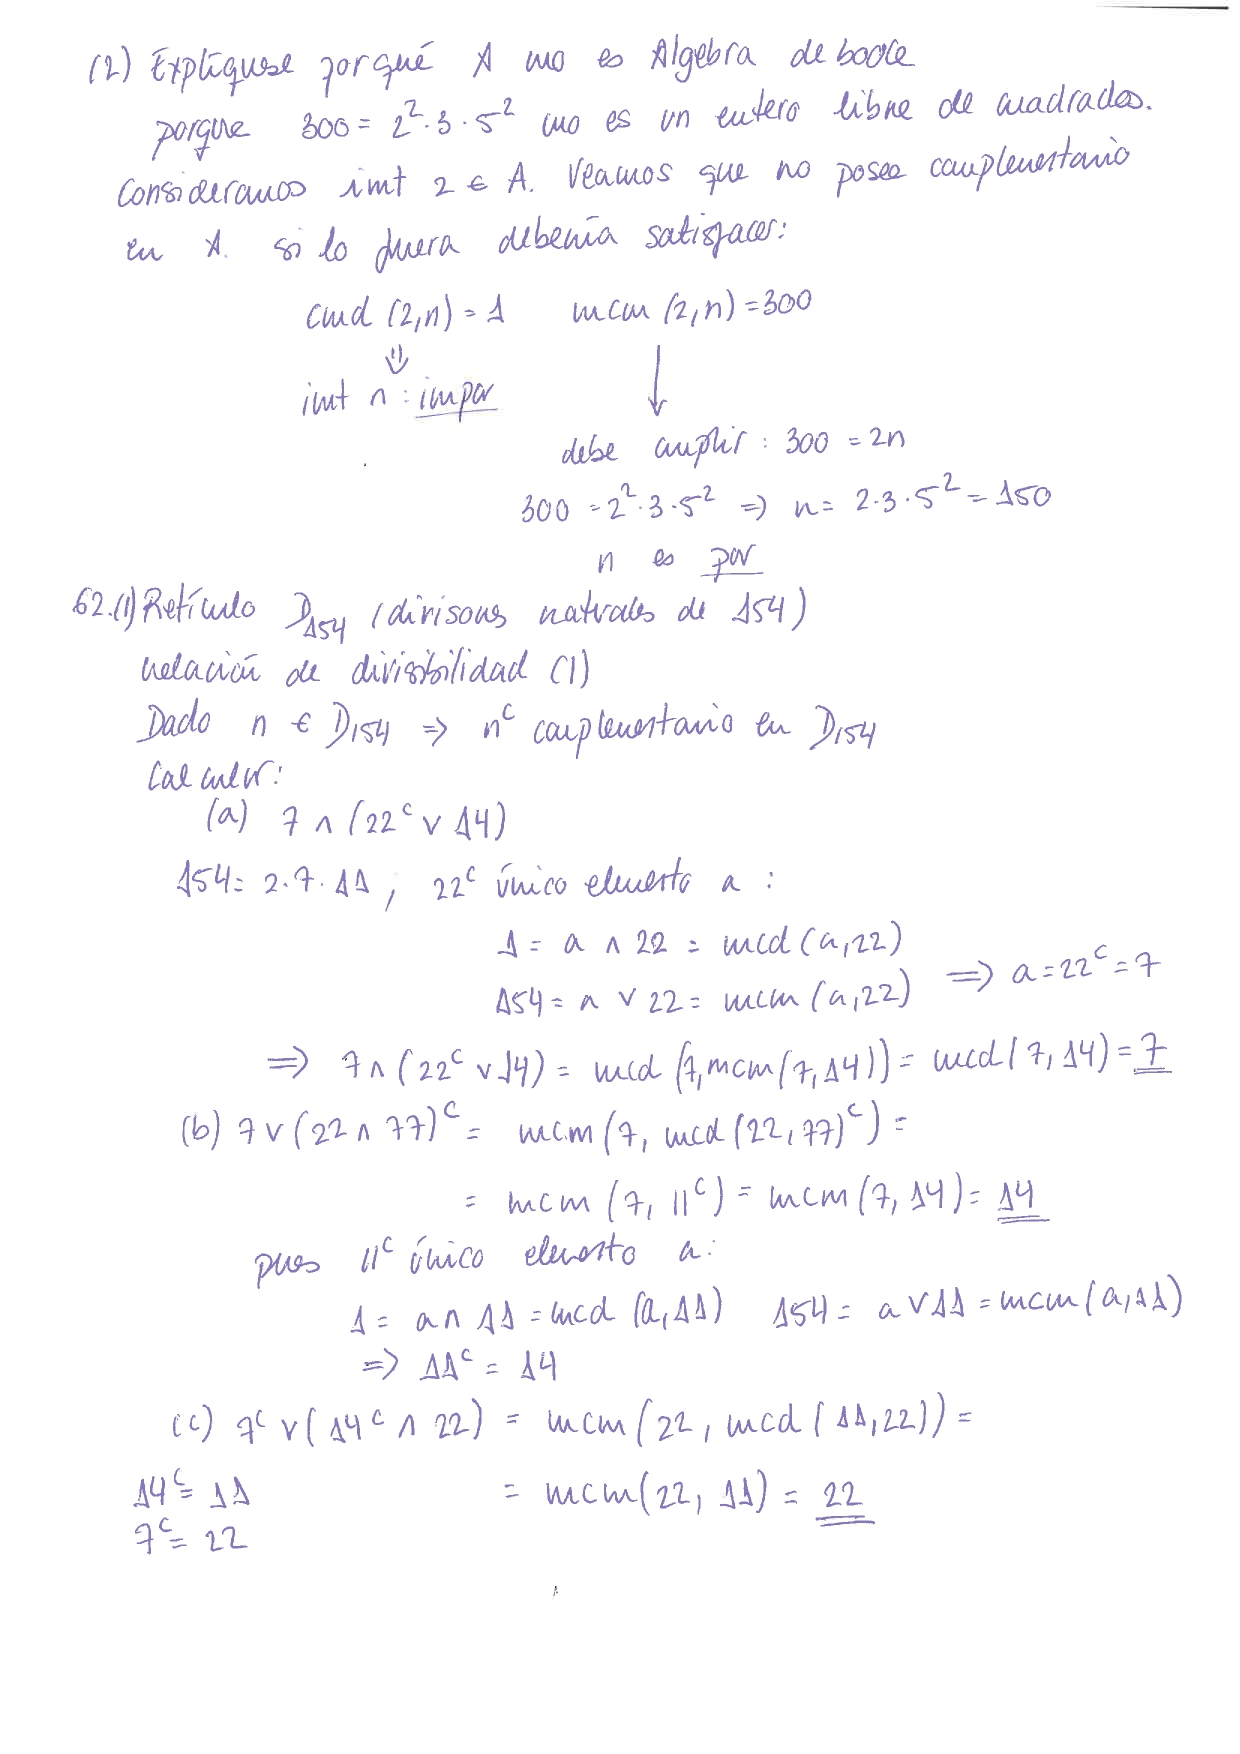 (2) Explíquese porqué A no es Algebra de boole
porque 300 = 2².3.5² no es un entero libre de cuadrados.
Consideramos int 2 ∈ A. Veamos que no posee complementario
en A. si lo fuera debería satisfacer:
cmd (2,n) = 1 mcm (2,n) = 300
⇓ ↓
int n : impar
debe cumplir : 300 = 2n
300 = 2².3.5² => n = 2.3.5² = 150
n es par
62.(1) Retículo D154 (divisores naturales de 154)
relación de divisibilidad (|)
Dado n ∈ D154 => nᶜ complementario en D154
Calcular:
(a) 7 ∧ (22ᶜ ∨ 14)
154 = 2.7.11, 22ᶜ único elemento a :
1 = a ∧ 22 = mcd (a,22)
154 = a ∨ 22 = mcm (a,22) => a = 22ᶜ = 7
=> 7 ∧ (22ᶜ ∨ 14) = mcd (7, mcm (7,14)) = mcd (7,14) = 7
(b) 7 ∨ (22 ∧ 77)ᶜ = mcm (7, mcd (22,77)ᶜ) =
= mcm (7, 11ᶜ) = mcm (7, 14) = 14
pues 11ᶜ único elemento a:
1 = a ∧ 11 = mcd (a,11) 154 = a ∨ 11 = mcm (a,11)
=> 11ᶜ = 14
(c) 7ᶜ ∨ (14ᶜ ∧ 22) = mcm (22, mcd (11,22)) =
14ᶜ = 11 = mcm (22, 11) = 22
7ᶜ = 22